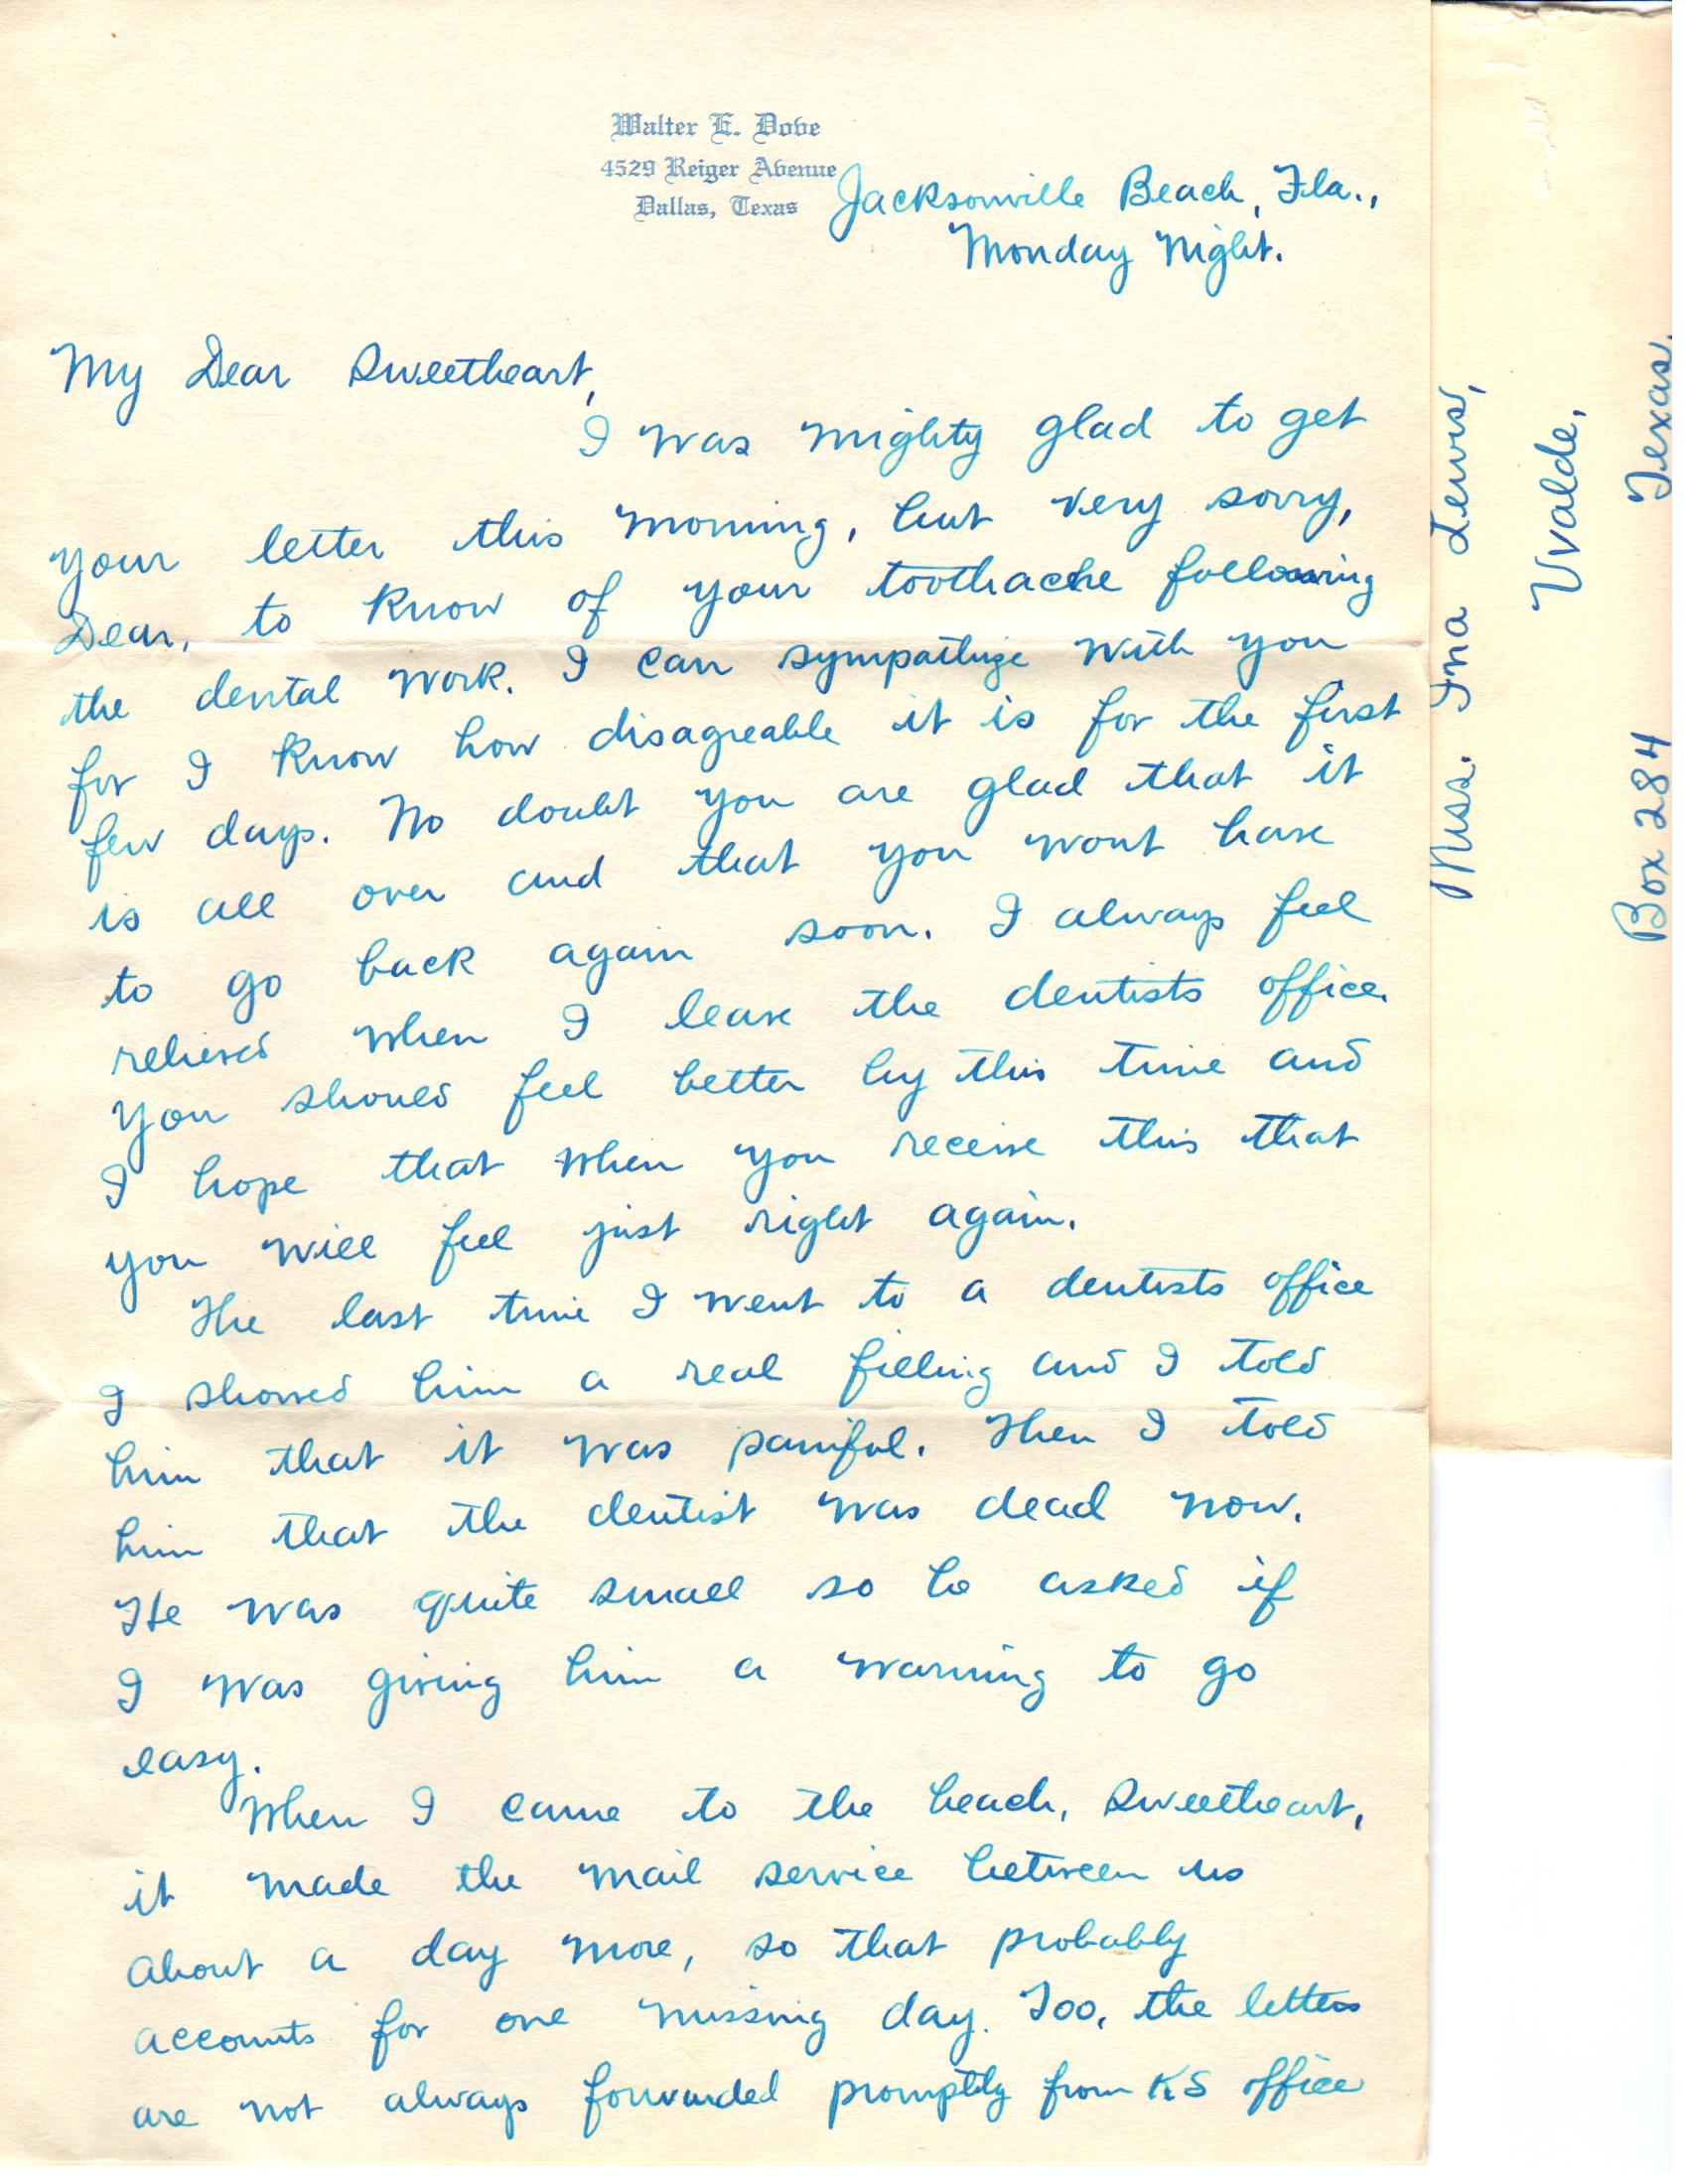 Walter E. Dove
4529 Reiger Avenue
Dallas, Texas
Jacksonville Beach, Fla.,
Monday Night.
My Dear Sweetheart,
I was mighty glad to get
your letter this morning, but very sorry,
Dear, to know of your toothache following
the dental work. I can sympathize with you
for I know how disagreeable it is for the first
few days. No doubt you are glad that it
is all over and that you wont have
to go back again soon. I always feel
relieved when I leave the dentists office.
You should feel better by this time and
I hope that when you receive this that
you will feel just right again.
The last time I went to a dentists office
I showed him a real filling and I told
him that it was painful. Then I told
him that the dentist was dead now.
He was quite small so he asked if
I was giving him a warning to go
easy.
When I came to the beach, Sweetheart,
it made the mail service between us
about a day more, so that probably
accounts for one missing day. Too, the letters
are not always forwarded promptly from KS office
Miss. Ina Lewis,
Uvalde,
Box 284 Texas.